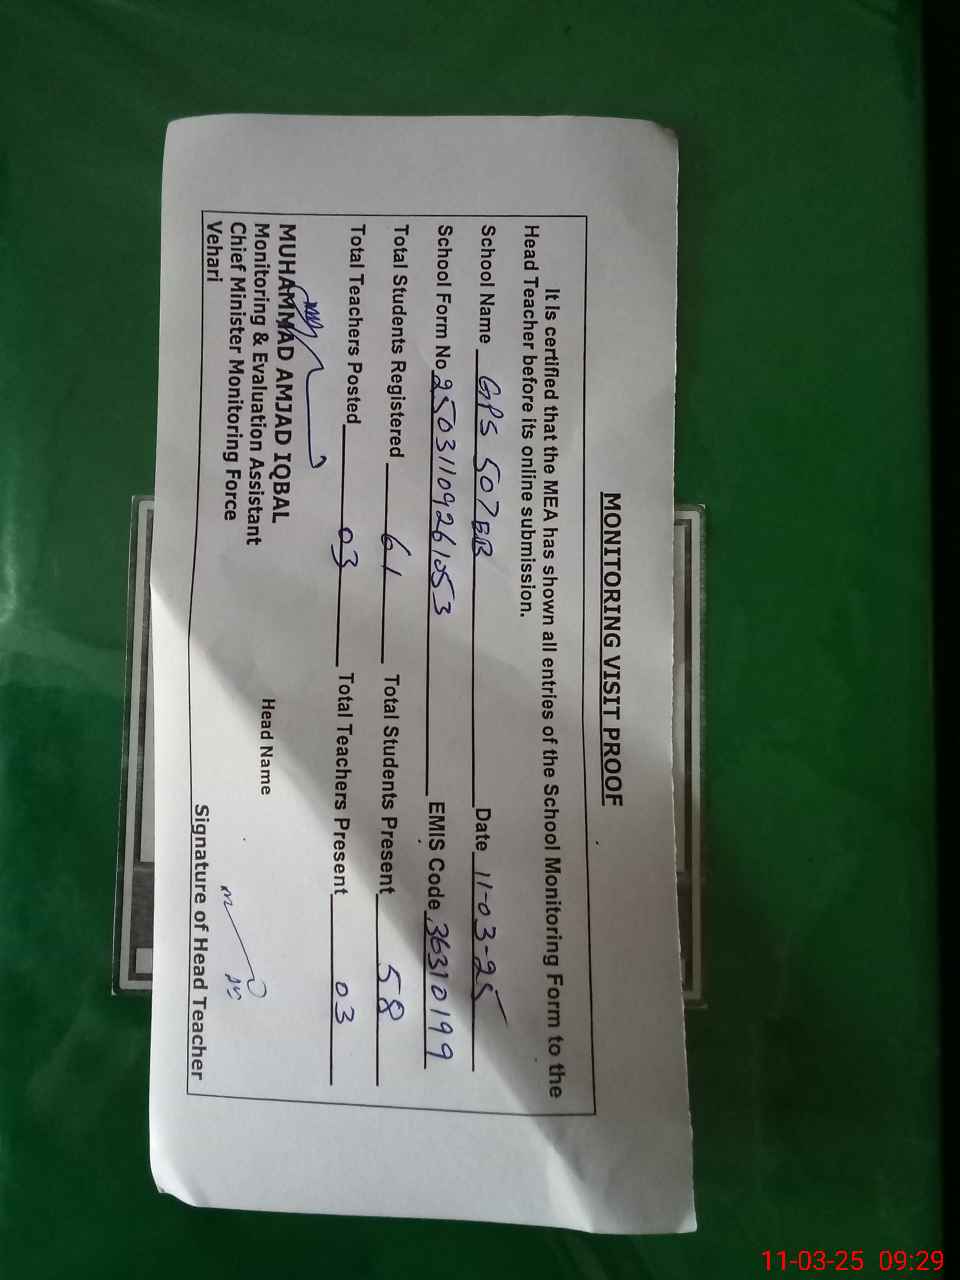 MONITORING VISIT PROOF
It Is certified that the MEA has shown all entries of the School Monitoring Form to the
Head Teacher before its online submission.
School Name GPS 507EB Date 11-03-25
School Form No 25031109261053 EMIS Code 36310199
Total Students Registered 61 Total Students Present 58
Total Teachers Posted 03 Total Teachers Present 03
MUHAMMAD AMJAD IQBAL
Monitoring & Evaluation Assistant
Chief Minister Monitoring Force
Vehari
Head Name
Signature of Head Teacher
11-03-25 09:29